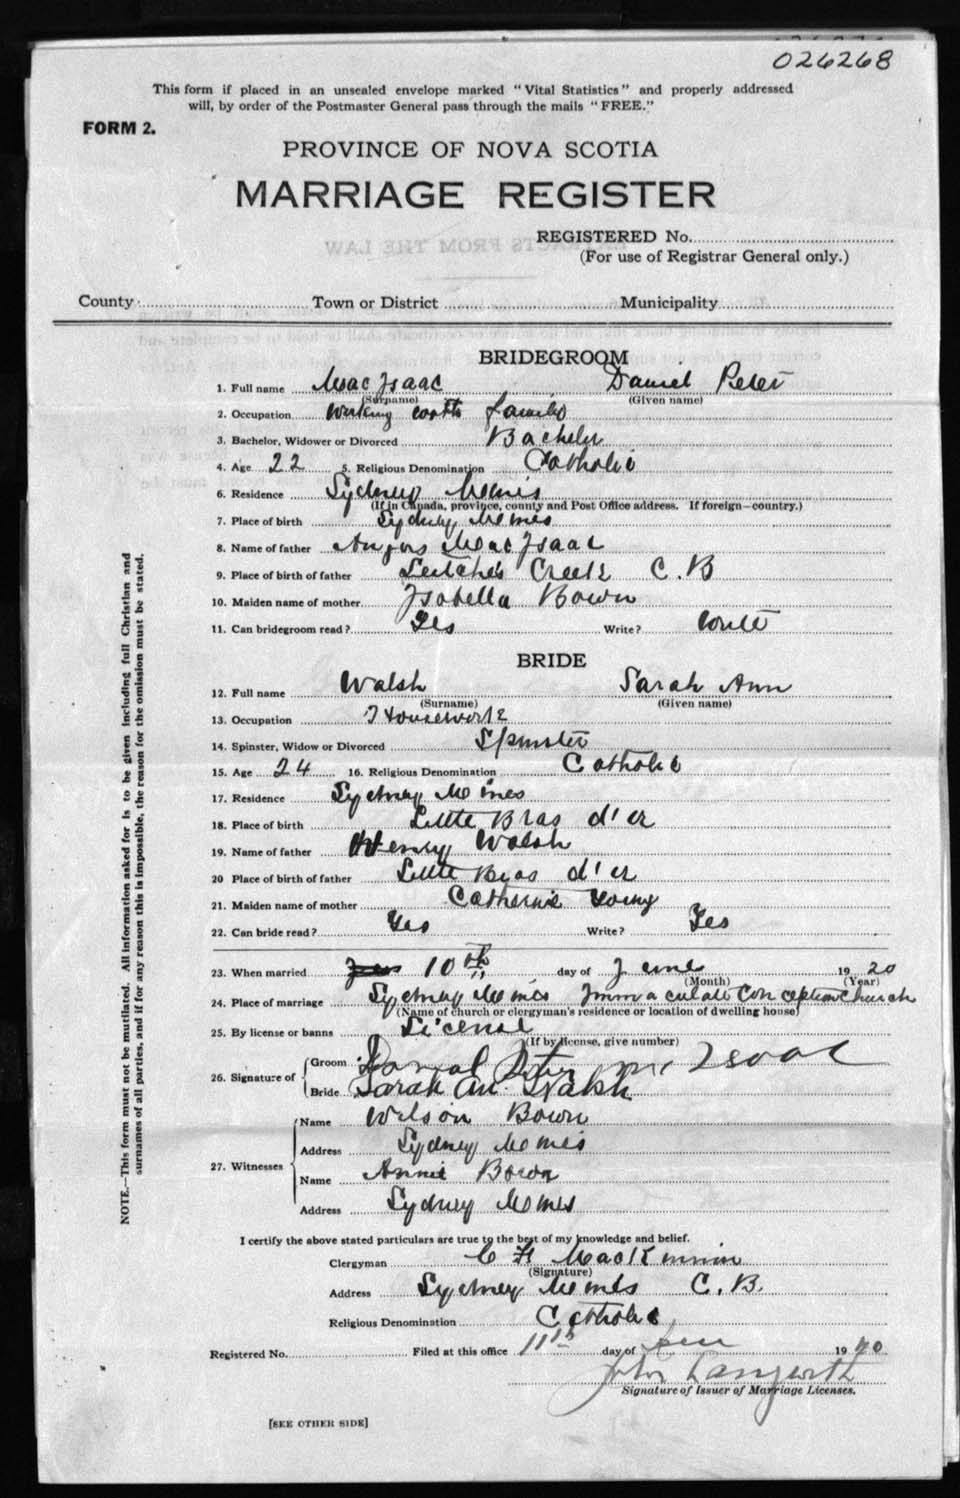 026268
This form if placed in an unsealed envelope marked "Vital Statistics" and properly addressed
will, by order of the Postmaster General pass through the mails "FREE."
FORM 2.
PROVINCE OF NOVA SCOTIA
MARRIAGE REGISTER
REGISTERED No.
(For use of Registrar General only.)
County Town or District Municipality
BRIDEGROOM
1. Full name Mac Isaac Daniel Peter
(Surname) (Given name)
2. Occupation Working
3. Bachelor, Widower or Divorced Bachelor
4. Age 22 5. Religious Denomination Catholic
6. Residence Sydney Mines
(If in Canada, province, county and Post Office address. If foreign—country.)
7. Place of birth Sydney Mines
8. Name of father Angus Mac Isaac
9. Place of birth of father Leitches Creek C.B
10. Maiden name of mother Isabella Bown
11. Can bridegroom read? Yes Write?
BRIDE
12. Full name Walsh Sarah Ann
(Surname) (Given name)
13. Occupation Housework
14. Spinster, Widow or Divorced Spinster
15. Age 24 16. Religious Denomination Catholic
17. Residence Sydney Mines
18. Place of birth Little Bras d'or
19. Name of father Henry Walsh
20 Place of birth of father Little Bras d'or
21. Maiden name of mother Catherine Young
22. Can bride read? Yes Write? Yes
23. When married 10th day of June 1920
(Month) (Year)
24. Place of marriage Sydney Mines Immaculate Conception Church
(Name of church or clergyman's residence or location of dwelling house)
25. By license or banns License
(If by license, give number)
26. Signature of Groom Danial Peter Mc Isaac
Bride Sarah Ann Walsh
27. Witnesses Name Wilson Bown
Address Sydney Mines
Name Annie Bown
Address Sydney Mines
I certify the above stated particulars are true to the best of my knowledge and belief.
Clergyman C F MacKinnon
(Signature)
Address Sydney Mines C.B.
Religious Denomination Catholic
Registered No. Filed at this office 11th day of Jun 1920
John Langwith
Signature of Issuer of Marriage Licenses.
[SEE OTHER SIDE]
NOTE.—This form must not be mutilated. All information asked for is to be given including full Christian and
surnames of all parties, and if for any reason this is impossible, the reason for the omission must be stated.